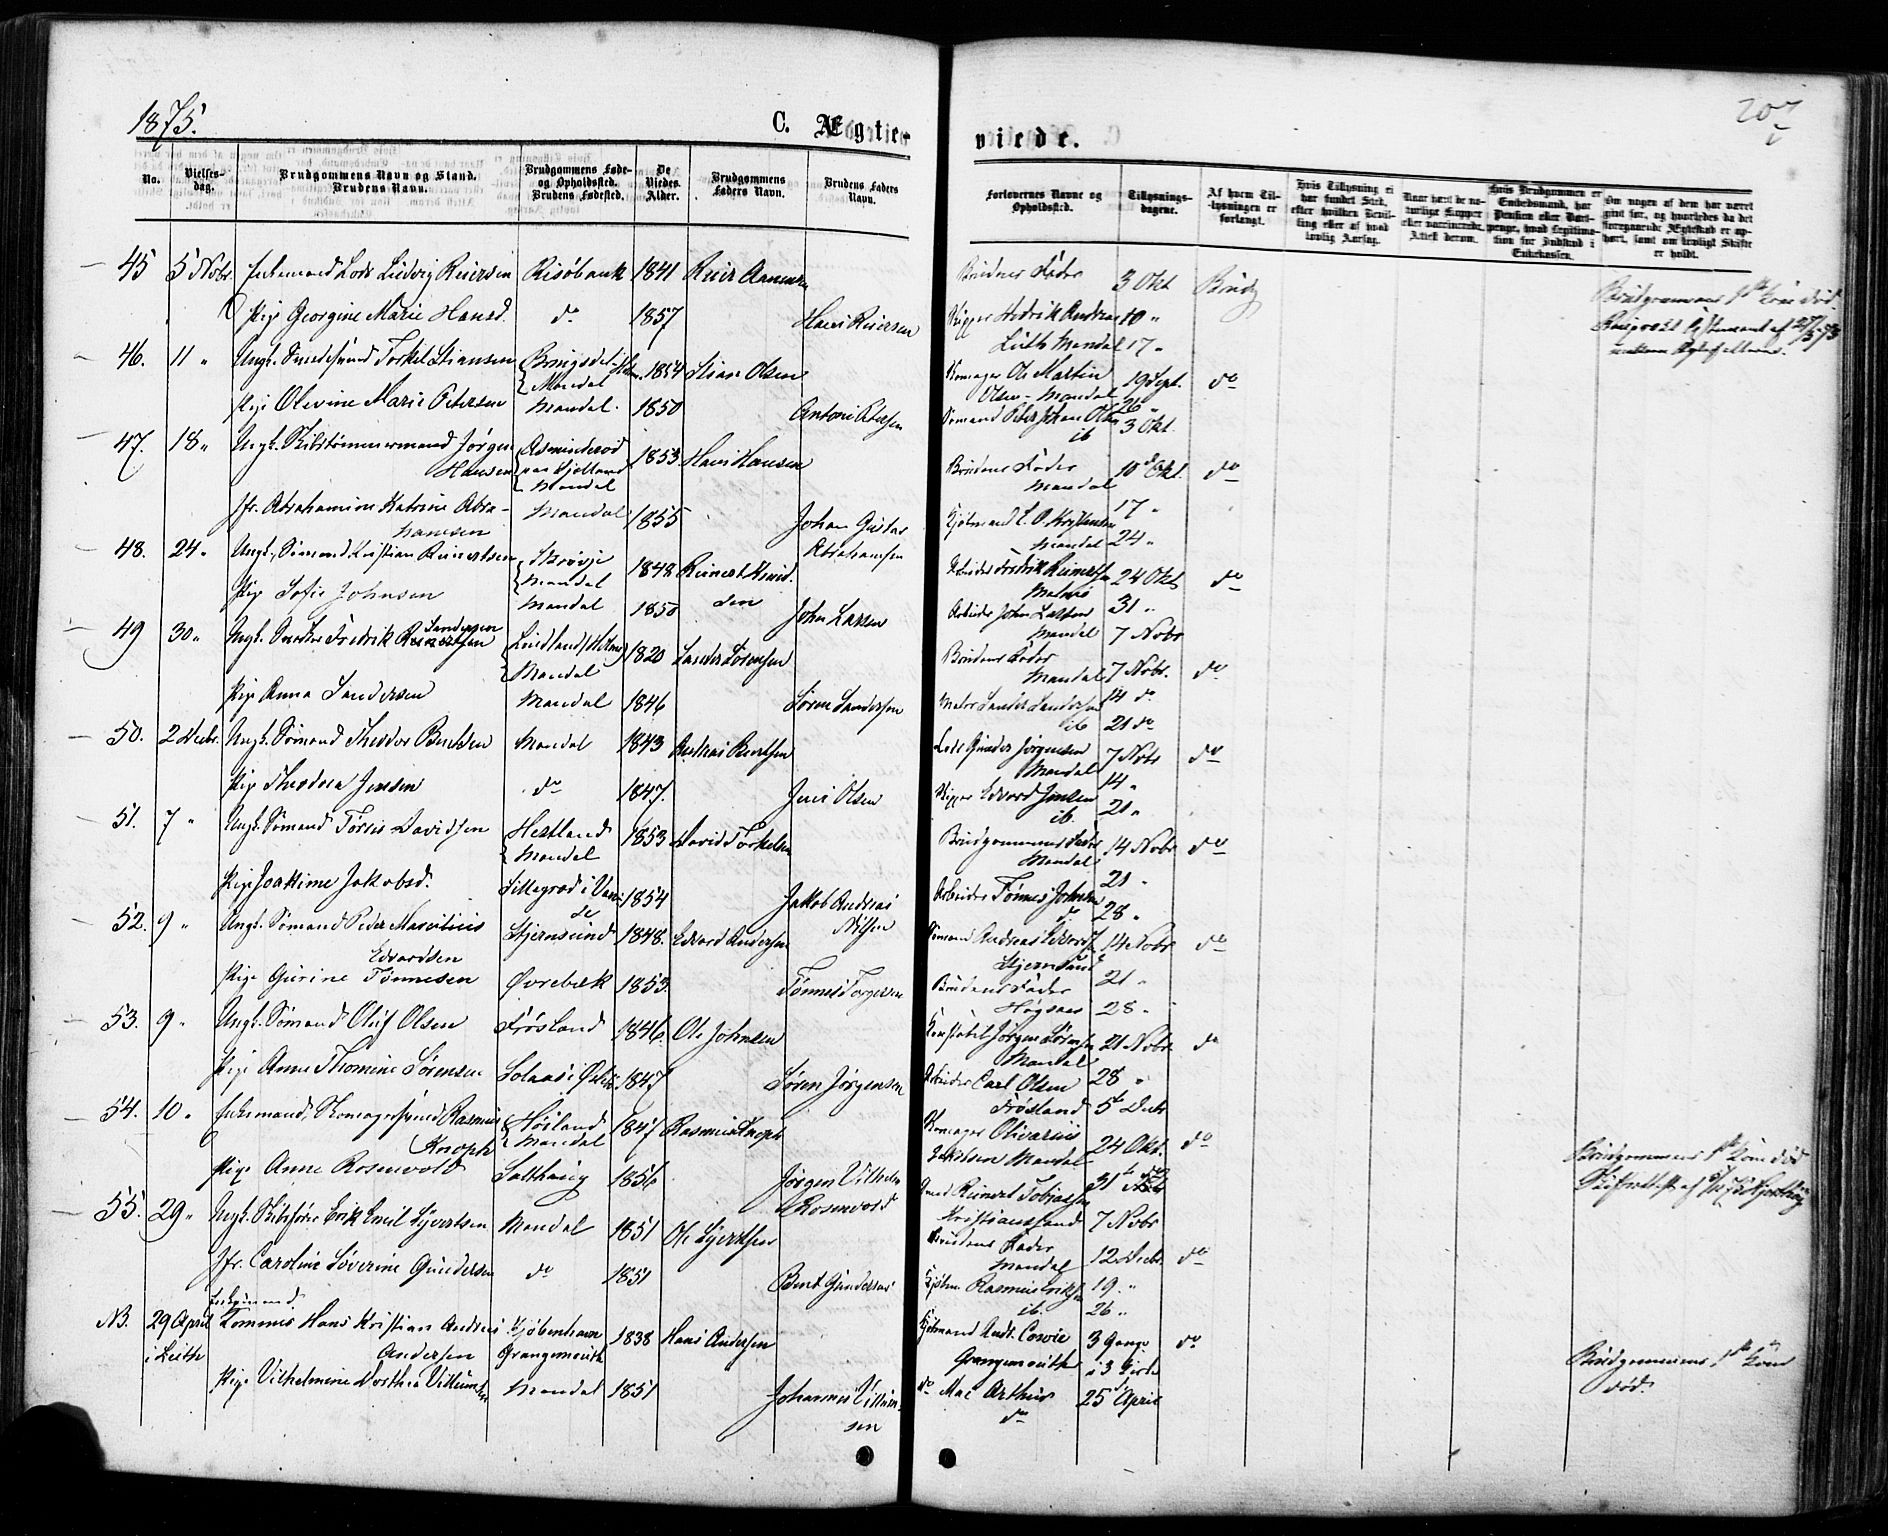 1875.
C. Ægtevviede.
207
No.
Vielses-
dag.
Brudgommens Navn og Stand.
Brudens Navn.
Brudgommens Føde-
og Opholdssted.
Brudens Fødested.
De
Viedes
Alder.
Brudgommens
Faders Navn.
Brudens Faders
Navn.
Forlovernes Navne og
Opholdssted.
Tillysnings-
dagene.
Af hvem Til-
lysningen er
forlangt.
Hvis Tillysning ei
har fundet Sted,
efter hvilken Bevil-
ling eller af hvad
lovlig Aarsag.
Naar havt de na-
turlige Kopper
eller vaccinerede,
Attest derom.
Hvis Brudgommen er
Embedsmand, har
Pension eller Vart-
penge, hvad Legitima-
tion for Indskud i
Enkekassen.
Om nogen af dem har været
gift før, og hvorledes da det
foregaaende Ægteskab er op-
hørt, samt om lovligt Skifte
er holdt.
45 5 Nobr. Enkemand Lods Ludvig Reiersen Risøbank 1841 Reier Aanensen
Brudens Fader 3 Okt Brudg
Brudgommens 1ste Kone død
Pige Georgine Marie Hansd. do 1857 Hans Reiersen
Skipper Fredrik Andreas 10 "
Lüth Mandal 17 "
46. 11 " Ungk. Smedesvend Torkel Stiansen Mandal 1854 Stian Olsen
Skomager Ole Martin
Olsen - Mandal 19 Sept. do
26 "
Pige Olevine Marie Petersen Mandal. 1850 Antoni Petersen
Sømand Peter Johan Olsen 3 Okt.
ib
47. 18 " Ungk. Skibstømmermand Jørgen
Hansen Asminderød
paa Sjælland
Mandal 1853 Hans Hansen
Brudens Fader
Mandal 10de Okt. do
Jfr. Abrahamine Katrine Abra-
hamsen Mandal 1855 Johan Gustav
Abrahamsen
Mandal 17 "
24 "
48. 24 " Ungk. Sømand Kristian Reinertsen
Mandal 1848 Reinert
Arbeider Fredrik Reinertsen 24 Okt do
Pige Sofie Johnsen Mandal 1850 John Larsen
Arbeider John Larsen 31 "
Mandal 7 Nobr
49 30 " Ungk. Snedker Fredrik Sandersen
Mandal 1820 Sander Sørensen
Brudens Fader
Mandal 7 Nobr. do
Pige Anna Sandersen Mandal 1846 Søren Sandersen
Sander Sandersen 14 do
ib 21 do
50. 2 Decbr. Ungk. Sømand Theodor Berntsen Mandal 1843 Andreas Berntsen
Lods Gunder Jørgensen
Mandal 7 Nobr do
Pige Theodora Jensen do 1847. Jens Olsen
Skipper Edvard Jensen 14 "
ib. 21 "
51. 7 " Ungk. Sømand Tørres Davidsen Hestland
Mandal 1853 David Torkelsen
Brudgommens Fader
Mandal 14 Nobr do
Pige Joakime Jakobsd. 1854 Jakob Andreas
Nilsen
Arbeider Tønnes Johnsen 21 "
do 28 "
52. 9 " Ungk. Sømand Peder Marcilius
Edvardsen Stjernsund 1848. Edvard Andersen
Sømand Andreas Edvards.
Stjernsund 14 Nobr do
Pige Gurine Tønnesen Øvrebæk 1853. Tønnes Torgersen
Brudens Fader 21 "
28 "
53. 9 " Ungk. Sømand Oluf Olsen Frøsland 1846. Ole Johnsen
Konstabel Jørgen Sørensen
Mandal 21 Nobr. do
Pige Anne Thomine Sørensen 1847 Søren Jørgensen
Arbeider Carl Olsen 28 "
Frøsland 5te Decbr
54. 10 " Enkemand, Skomagersvend Rasmus
Knoph Høiland
Mandal 1847 Rasmus Knoph
Skomager Olivarius
Jakobsen Mandal 24 Okt. do
Brudgommens 1ste Kone død
Pige Anne Rosenvold 1856 Jørgen Vilhelm
Rosenvold
Smed Reinert Tobiassen 31 do
Kristianssand 7 Nobr
55. 29 " Ungk. Skibsfører Erik Emil Sjvertsen Mandal 1851 Ole Sjvertsen
Brudens Fader
Mandal 12 Decbr. do
Jfr. Caroline Severine Gundersen do 1851 Bernt Gundersen
Kjøbm. Rasmus Eriksen 19. "
ib. 26 "
NB. 29 April
i Leith Enkemand
Kommis Hans Kristian Andreas
Andersen Kjøbenhavn
Grangemouth 1838 Hans Andersen
Kjøbmand Andr. Cowie
Grangemouth 3 Gange
i 3 Kirke do
Brudgommens 1ste Kone
død.
Pige Vilhelmine Dorthea Villumsen Mandal 1851 Johannes Villum-
sen
do Mac Arthur 25 April
do